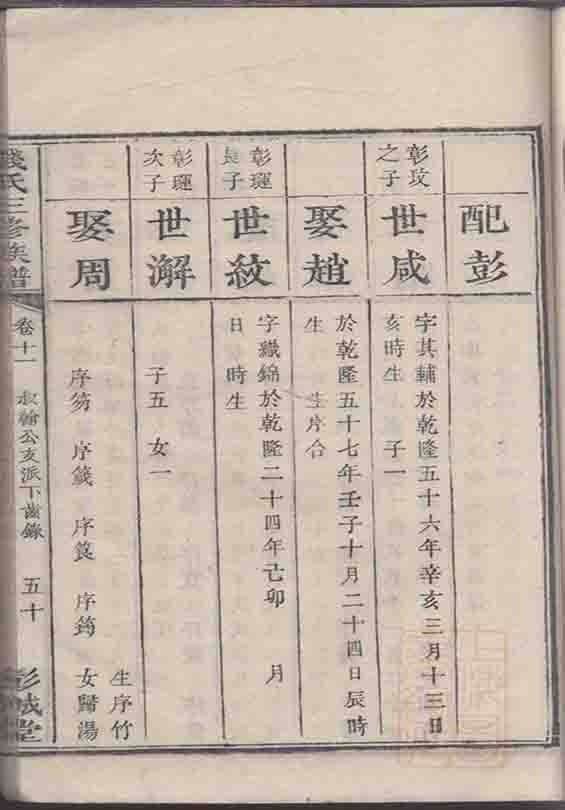 配彭
彰玟之子
世咸
字其輔於乾隆五十六年辛亥三月十三日
亥時生 子一
娶趙
於乾隆五十七年壬子十月二十四日辰時
生 生序台
彰璭長子
世紋
字織錦於乾隆二十四年己卯 月
日 時生
彰璭次子
世澥
子五 女一
娶周
生序竹
序箹 序籛 序筤 序筠 女歸湯
錢氏三修族譜
卷十一
叔翰公支派下齒錄
五十
彭城堂